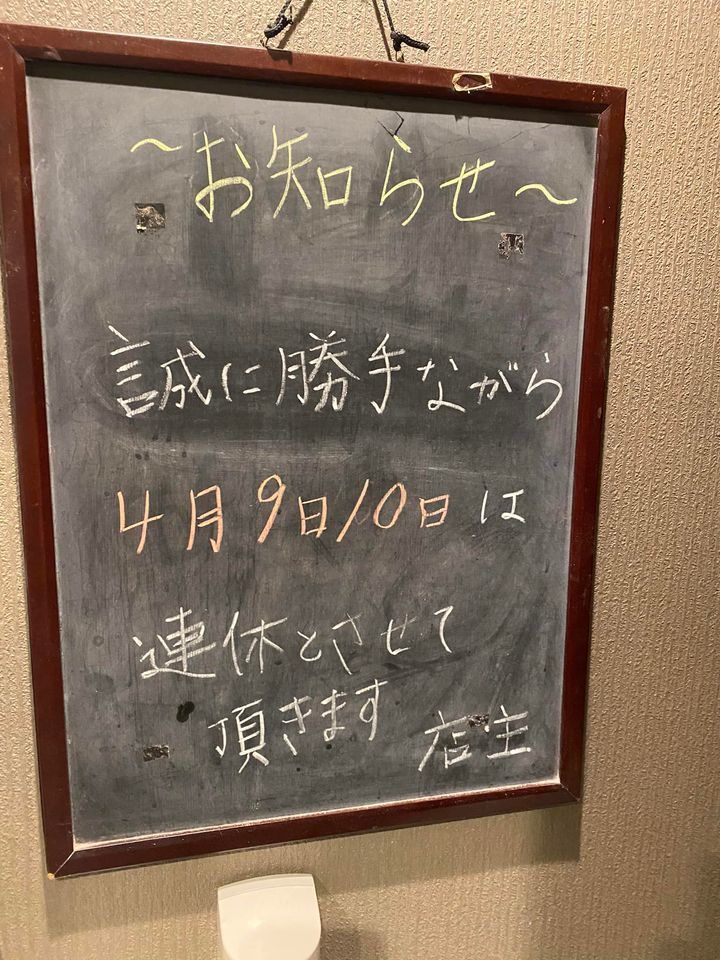 ～お知らせ～
誠に勝手ながら
4月9日10日は
連休とさせて
頂きます 店主